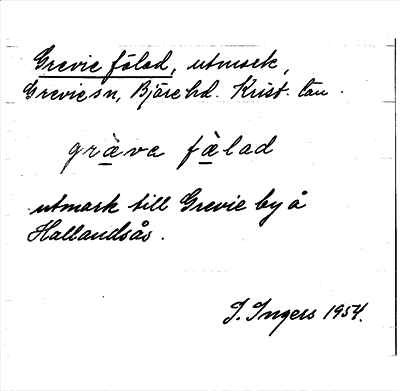 Grevie fälad, utmark,
Grevie sn, Bjäre hd. Krist. län.
gràva fàlad
utmark till Grevie by å
Hallandsås.
I. Ingers 1954.